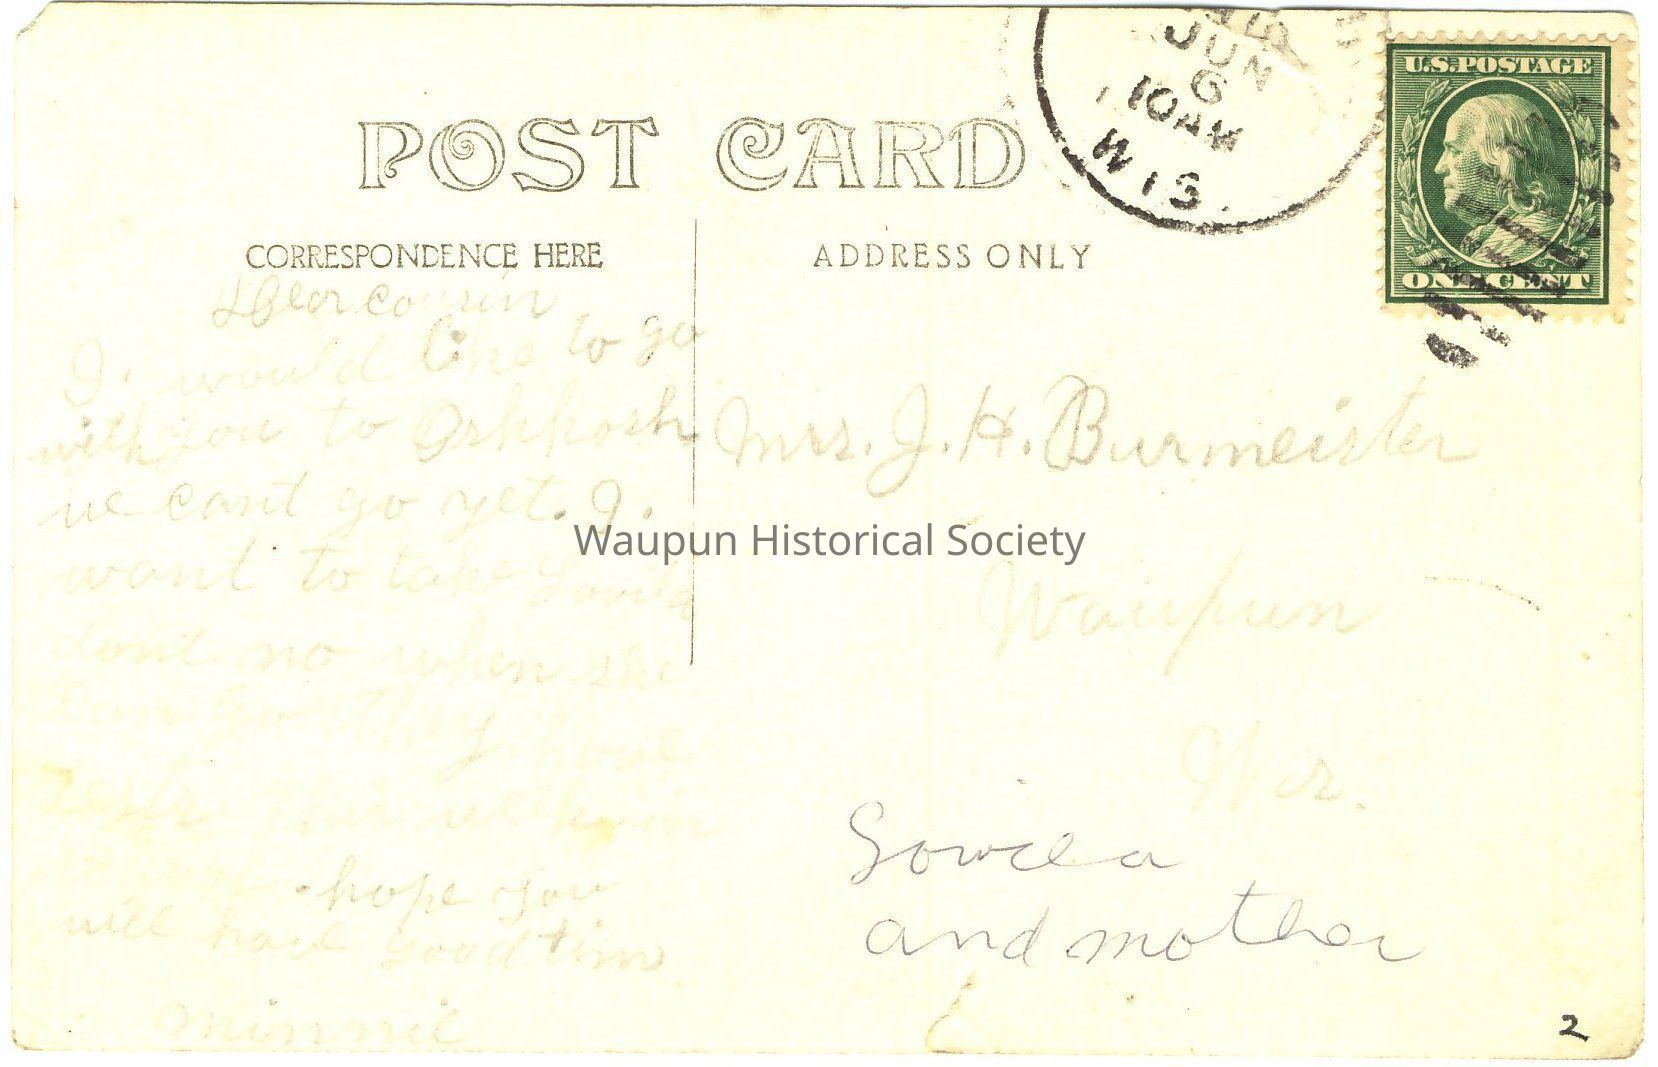 JUN
6
10 AM
WIS.
U.S. POSTAGE
ONE CENT
POST CARD
CORRESPONDENCE HERE
ADDRESS ONLY
Dear cousin
I. would like to go
with you to Oshkosh
we cant go yet. I.
want to take
dont no when she
can go they have
tests this week in
hope you
will have good time
Minnie
Mrs. J. H. Burmeister
Waupun
Wis.
and mother
Waupun Historical Society
2